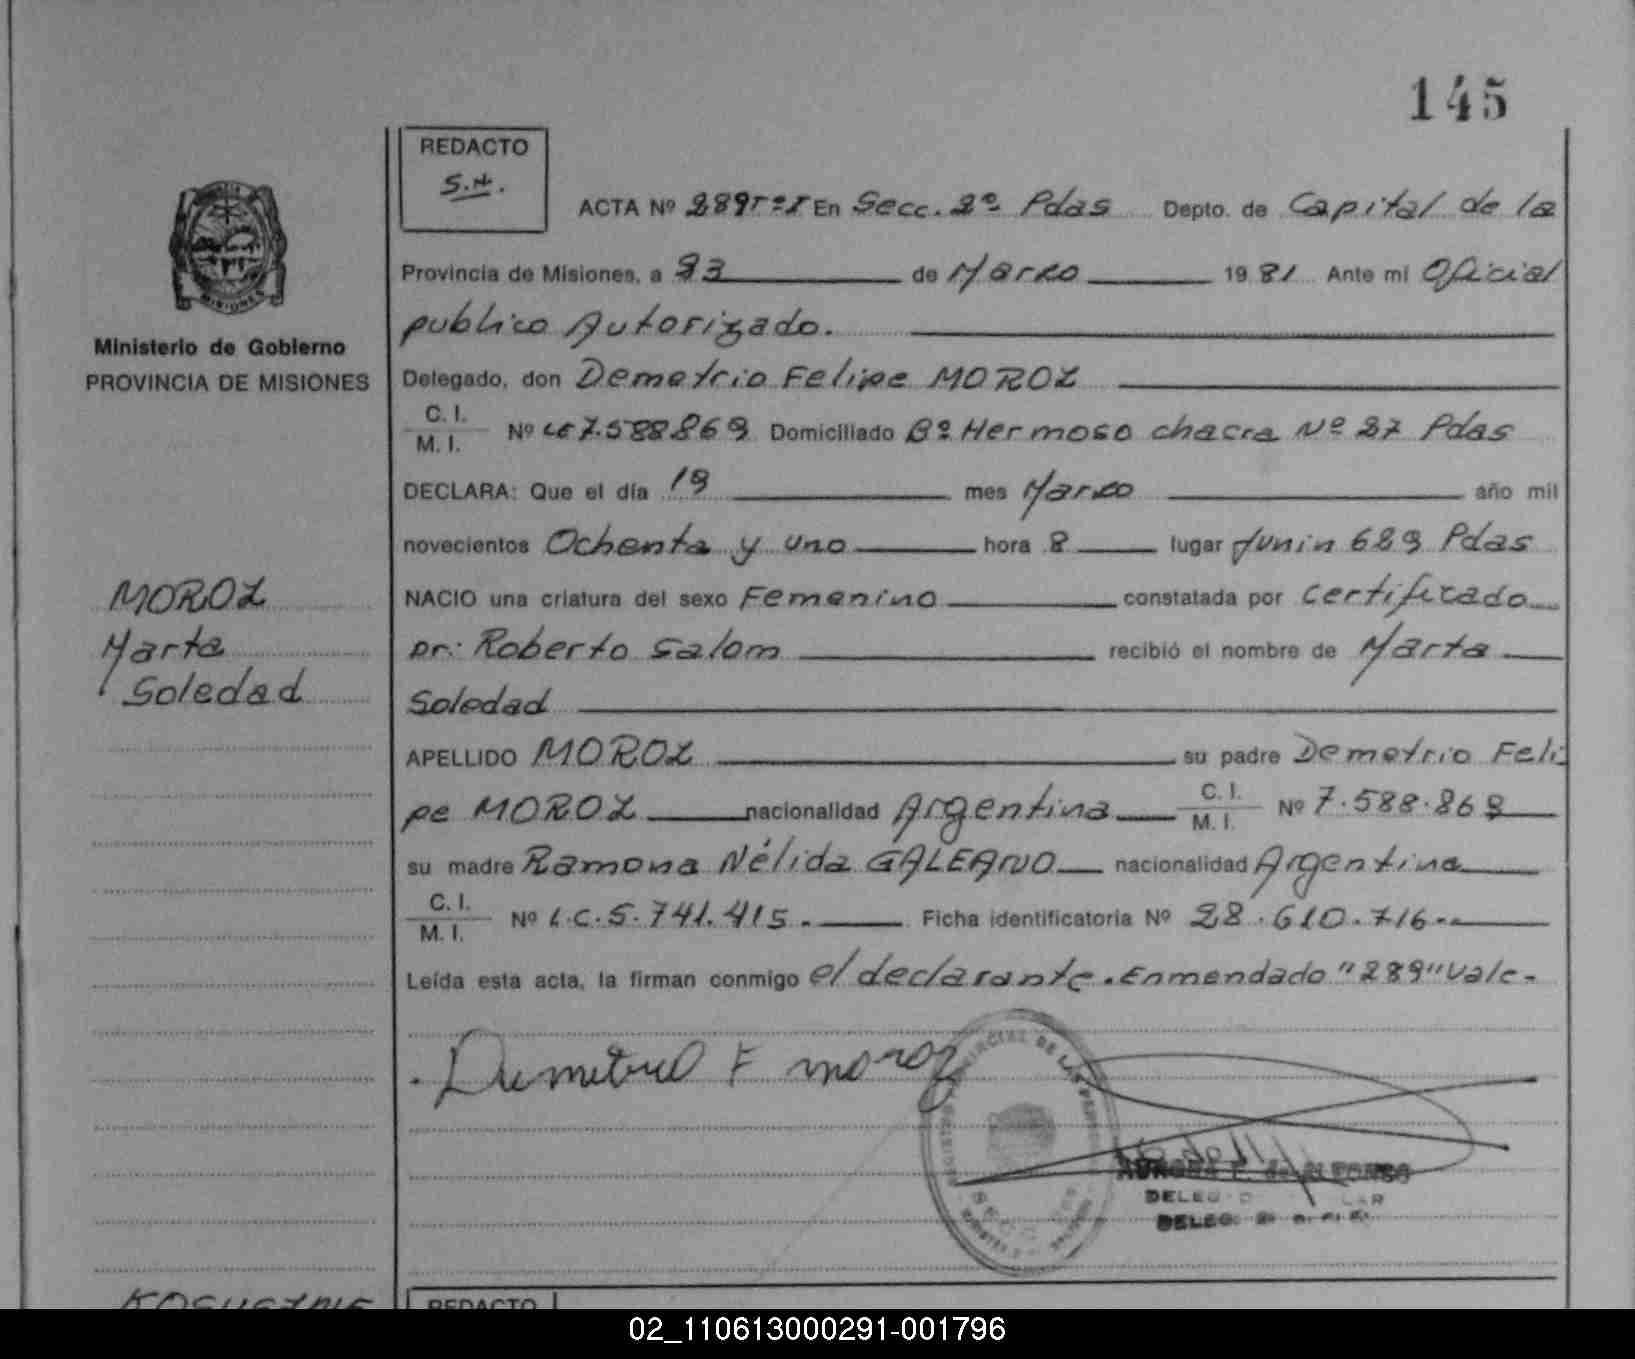 145
REDACTO
S.N.
ACTA Nº 289 Tº I En Secc. 2º Pdas Depto. de Capital de la
Provincia de Misiones, a 23 de Marzo 1981 Ante mi Oficial
publico Autorizado.
Ministerio de Gobierno
PROVINCIA DE MISIONES
Delegado, don Demetrio Felipe MOROZ
C. I.
M. I. Nº LE 7.588.869 Domiciliado Bº Hermoso chacra Nº 27 Pdas
DECLARA: Que el día 19 mes Marzo año mil
novecientos Ochenta y uno hora 8 lugar Junin 689 Pdas
MOROZ
Marta
Soledad
NACIO una criatura del sexo Femenino constatada por certificado
Dr: Roberto Salom recibió el nombre de Marta
Soledad
APELLIDO MOROZ su padre Demetrio Feli
pe MOROZ nacionalidad Argentina C. I.
M. I. Nº 7.588.869
su madre Ramona Nélida GALEANO nacionalidad Argentina
C. I.
M. I. Nº L.C.5.741.415.- Ficha identificatoria Nº 28.610.716.-
Leída esta acta, la firman conmigo el declarante. Enmendado "289" Vale-
Demetrio F Moroz
DE ALFONSO
REDACTO
02_110613000291-001796